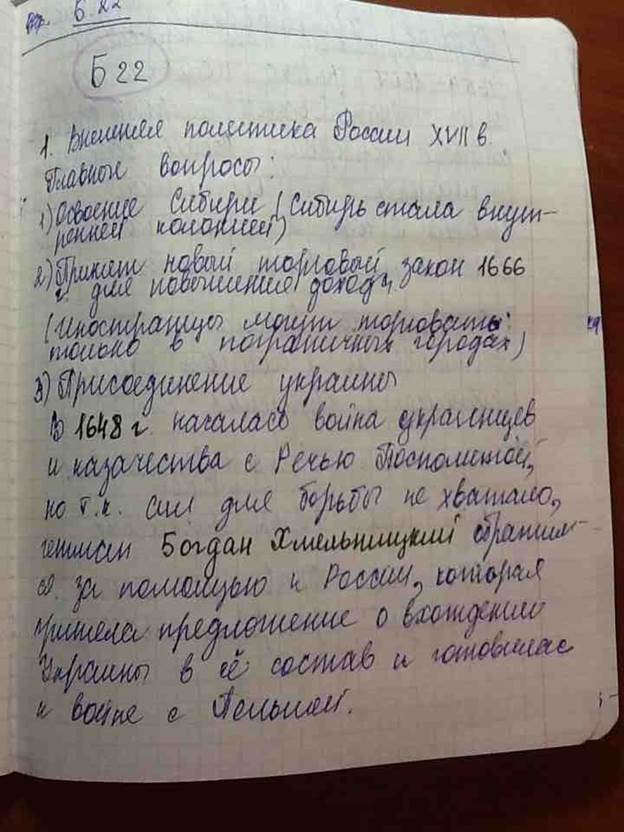 Б. 22
Б 22
1. Внешняя политика России XVII в.
Главные вопросы:
1) Освоение Сибири (Сибирь стала внут-
ренней колонией)
2) Принят новый торговый закон 1666
г. для повышения дохода,
(Иностранцы могут торговать
только в пограничных городах)
3) Присоединение украины
В 1648 г. началась война украинцев
и казачества с Речью Посполитой,
но т.к. сил для борьбы не хватало,
гетман Богдан Хмельницкий обратил-
ся за помощью к России, которая
приняла предложение о вхождении
Украины в её состав и готовилась
к войне с Польшей.